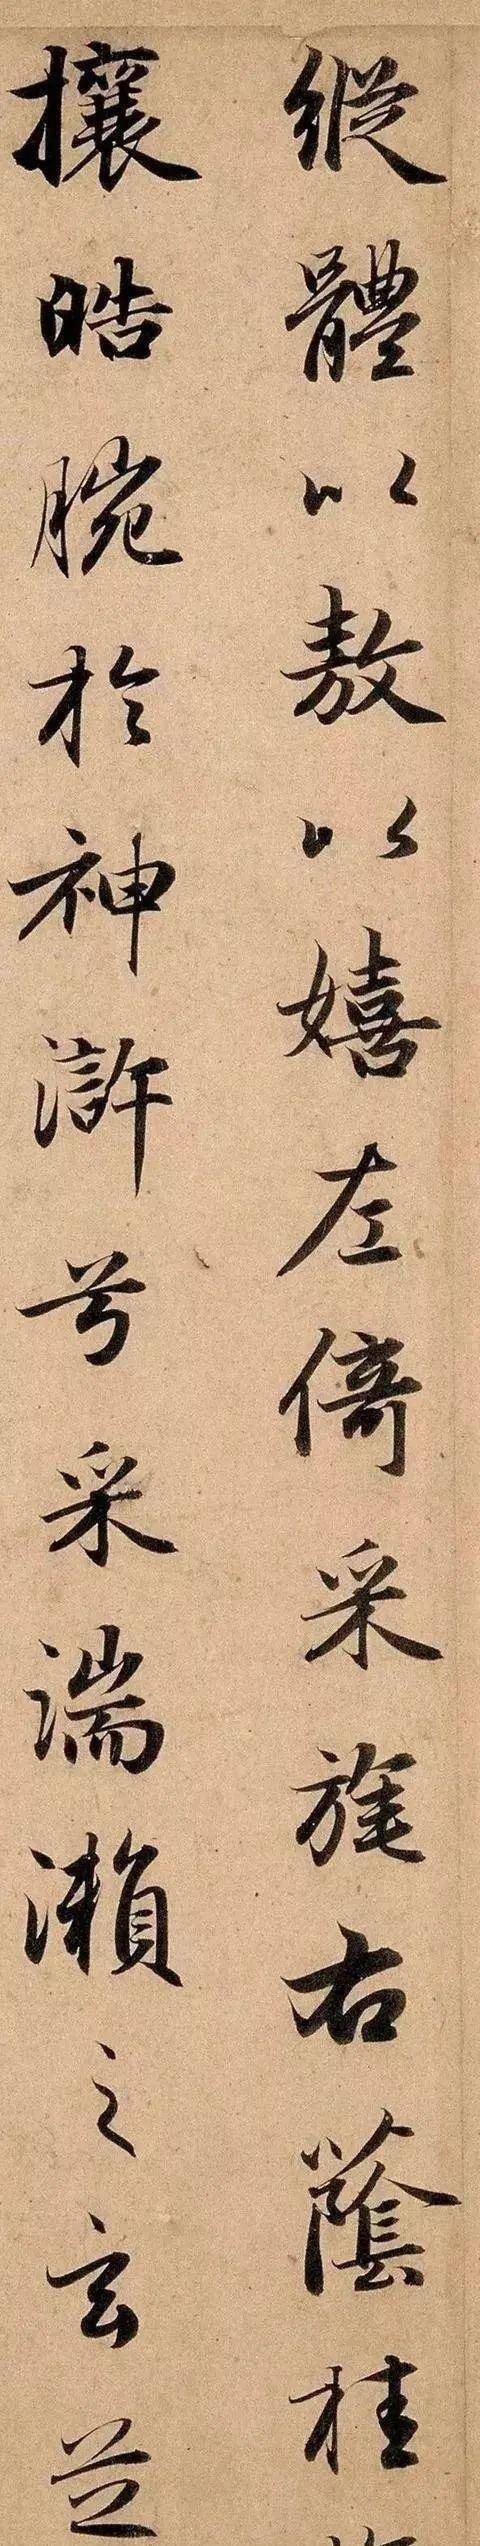 縱體以敖以嬉左倚采旄右蔭桂
攘皓腕於神滸兮采湍瀨之玄芝